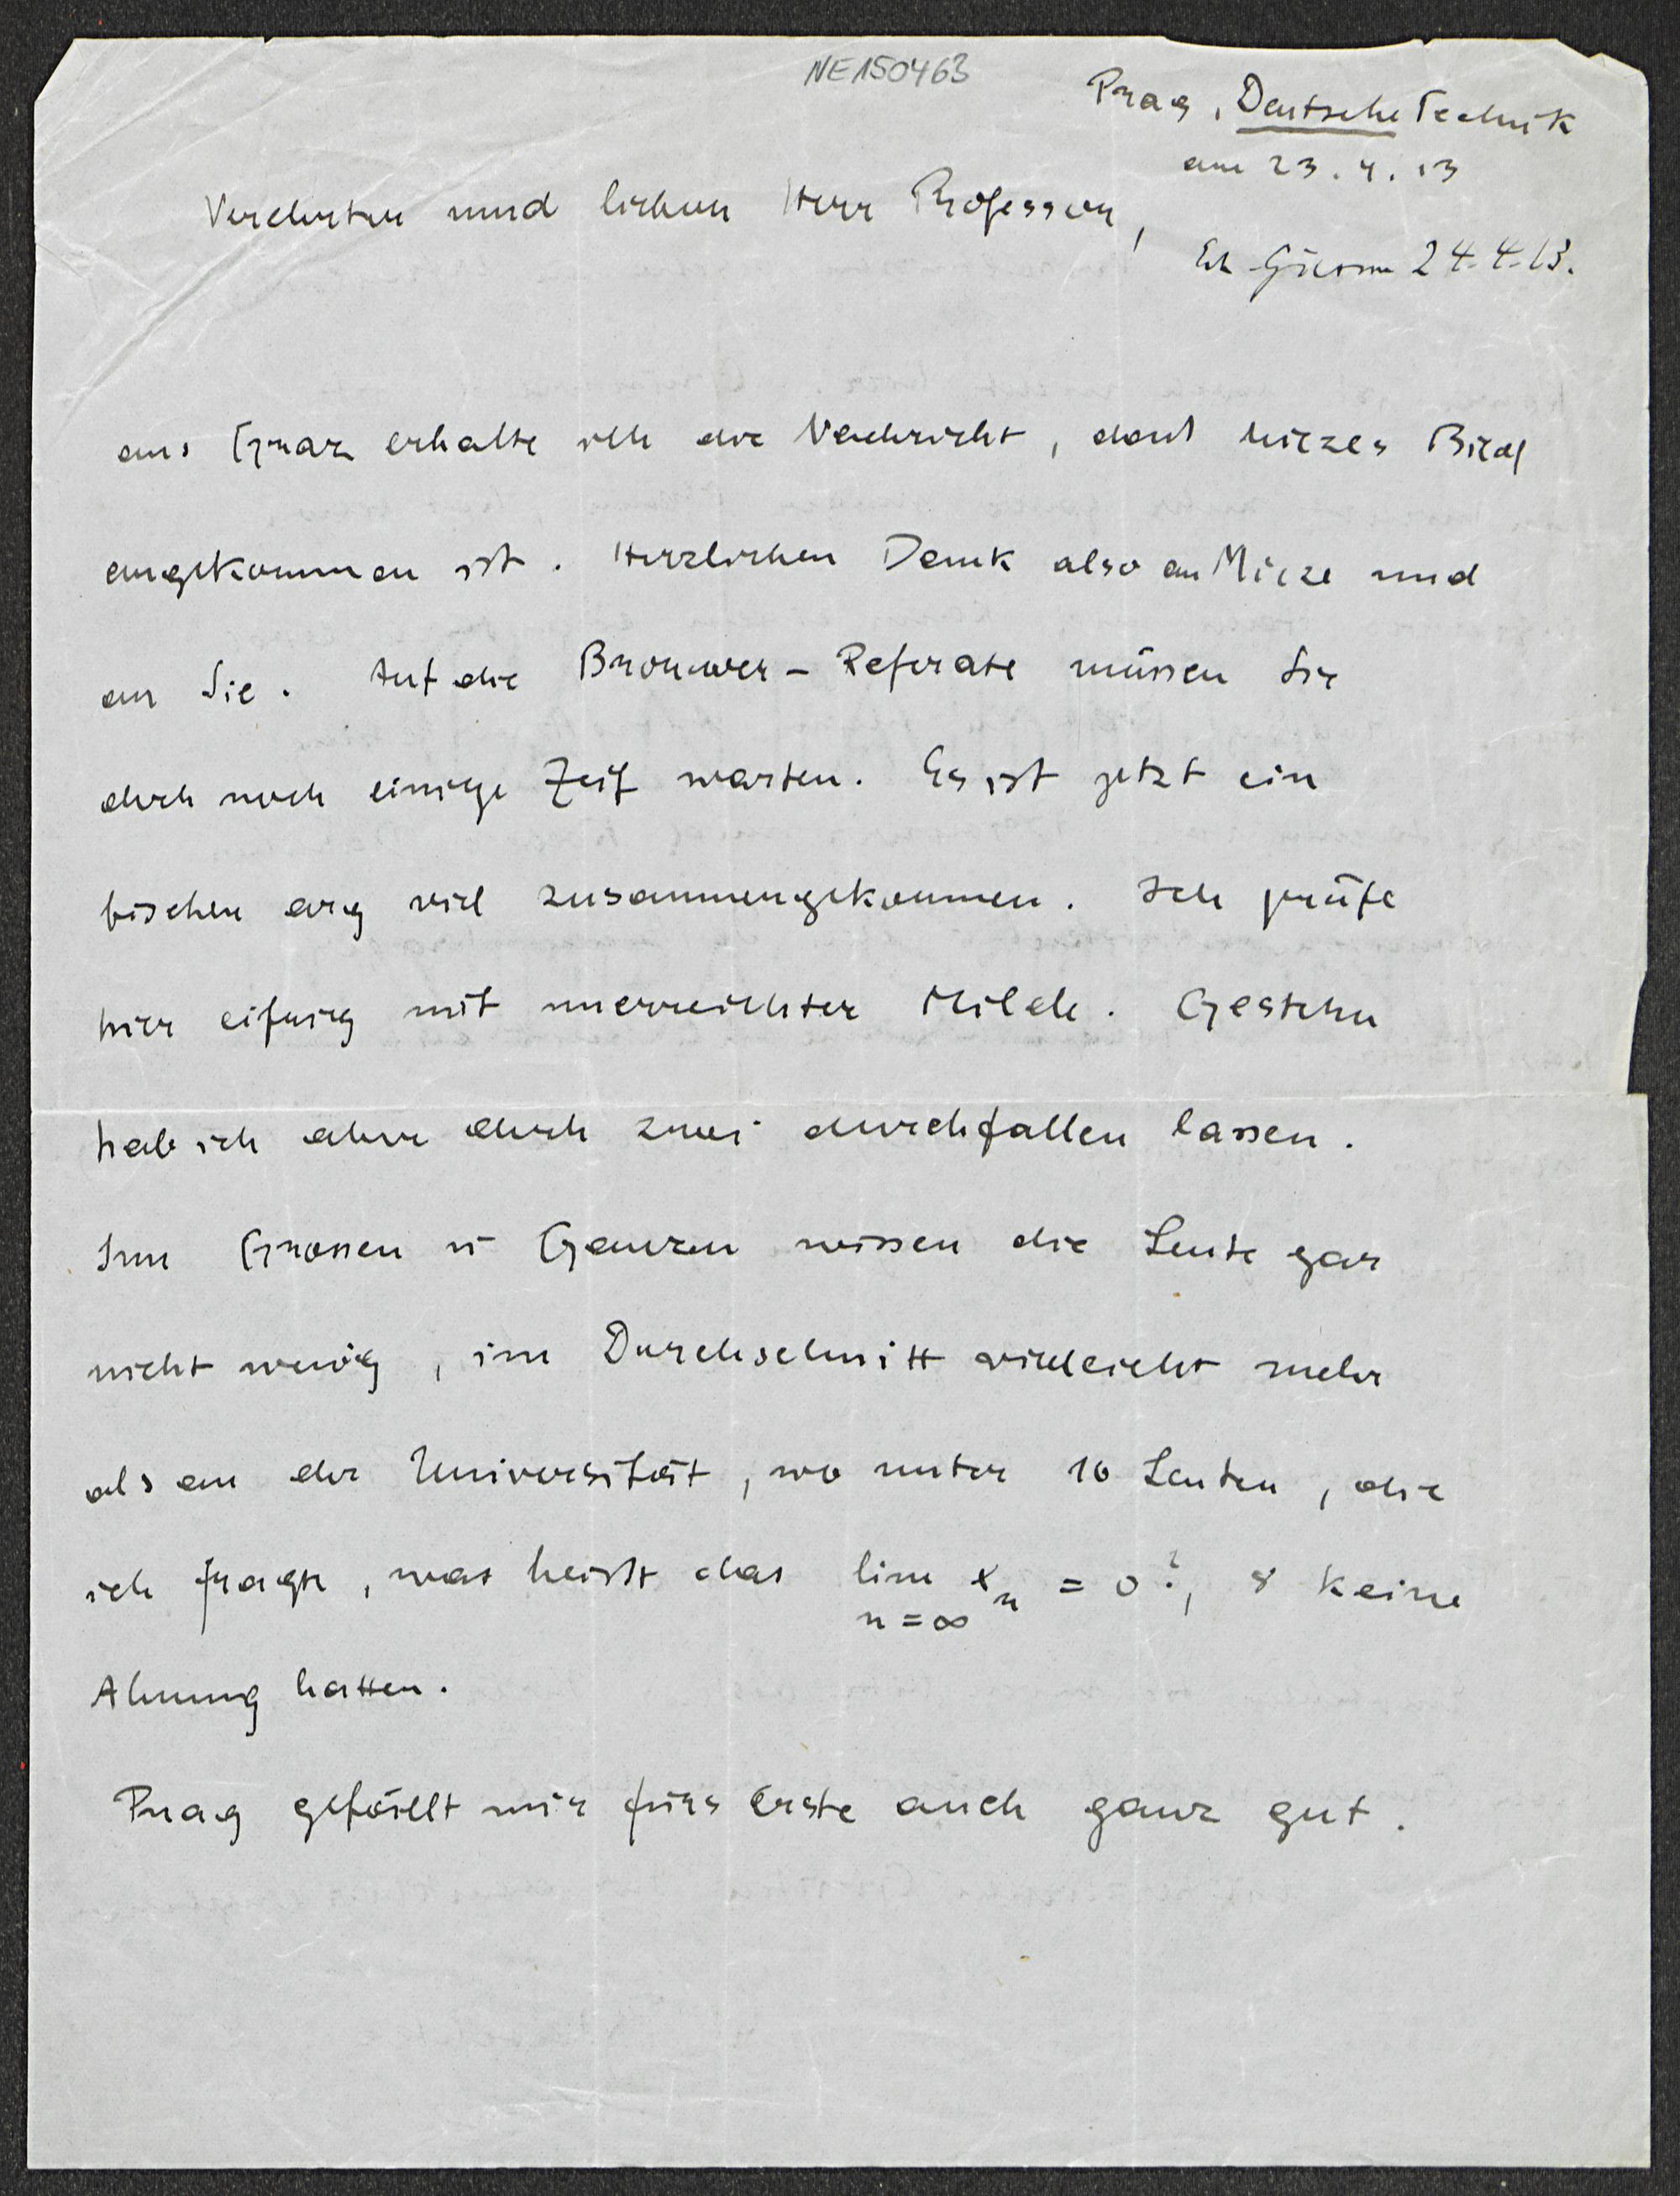 NE150463
Prag, Deutsche Technik
am 23.4.13
Verehrter und lieber Herr Professor,
24.4.13.
aus Graz erhalte ich die Nachricht, dass Miezes Bild
angekommen ist. Herzlichen Dank also an Mieze und
an Sie. Auf die Brouwer-Referate müssen Sie
doch noch einige Zeit warten. Es ist jetzt ein
bischen arg viel zusammengekommen. Ich prüfe
hier eifrig mit unerreichter Milde. Gestern
hab ich aber doch zwei durchfallen lassen.
Im Grossen u Ganzen wissen die Leute gar
nicht wenig, im Durchschnitt vielleicht mehr
als an der Universität, wo unter 10 Leuten, die
ich fragte, was heisst das lim xₙ = 0?, 8 keine
n=∞
Ahnung hatten.
Prag gefällt mir fürs Erste auch ganz gut.